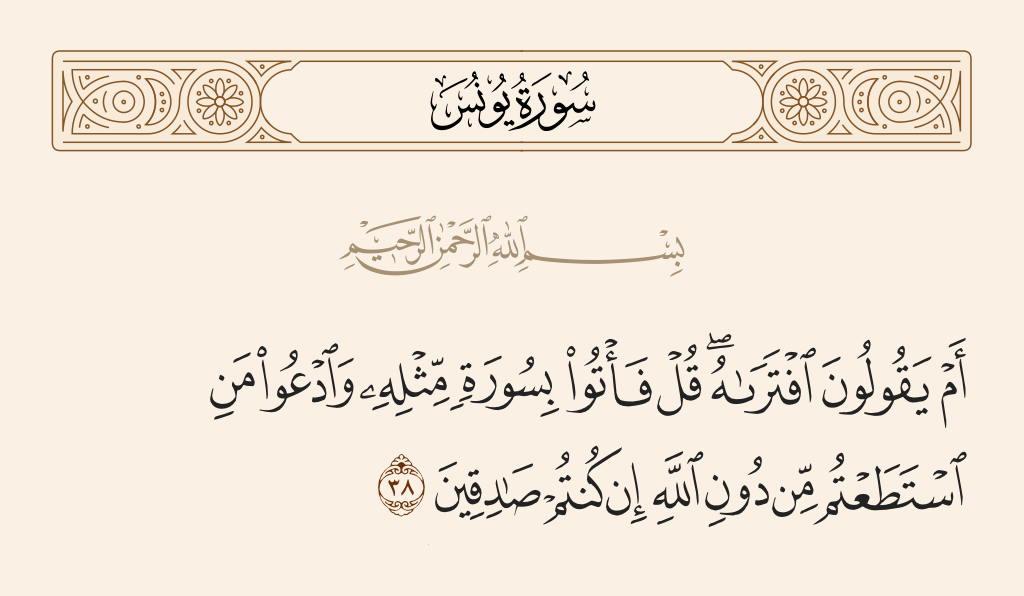 سُورَةُ يُونُسَ
بِسْمِ ٱللَّهِ ٱلرَّحْمَٰنِ ٱلرَّحِيمِ
أَمْ يَقُولُونَ ٱفْتَرَىٰهُ ۖ قُلْ فَأْتُوا۟ بِسُورَةٍ مِّثْلِهِۦ وَٱدْعُوا۟ مَنِ
ٱسْتَطَعْتُم مِّن دُونِ ٱللَّهِ إِن كُنتُمْ صَٰدِقِينَ ٣٨